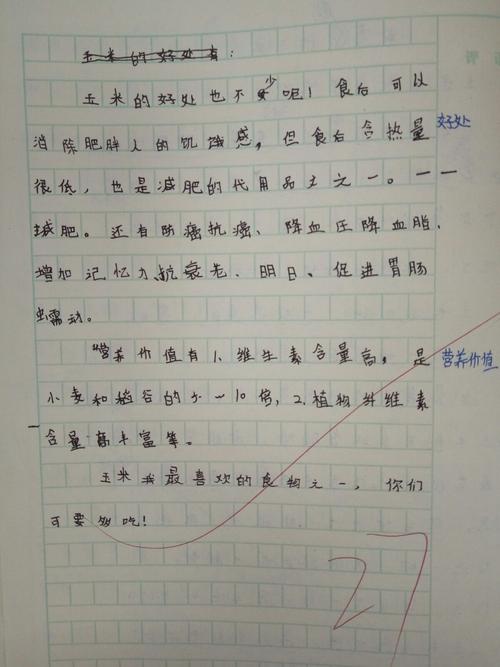 玉米的好处有：
玉米的好处也不少呢！食后可以
消除肥胖人的饥饿感，但食后含热量 好处
很低，也是减肥的代用品主之一。——
减肥。还有防癌抗癌、降血压降血脂、
增加记忆力、抗衰老、明目、促进胃肠
蠕动。
营养价值有1.维生素含量高，是 营养价值
小麦和稻谷的5~10倍，2.植物纤维素
含量高丰富等。
玉米我最喜欢的食物之一，你们
可要多吃！
27